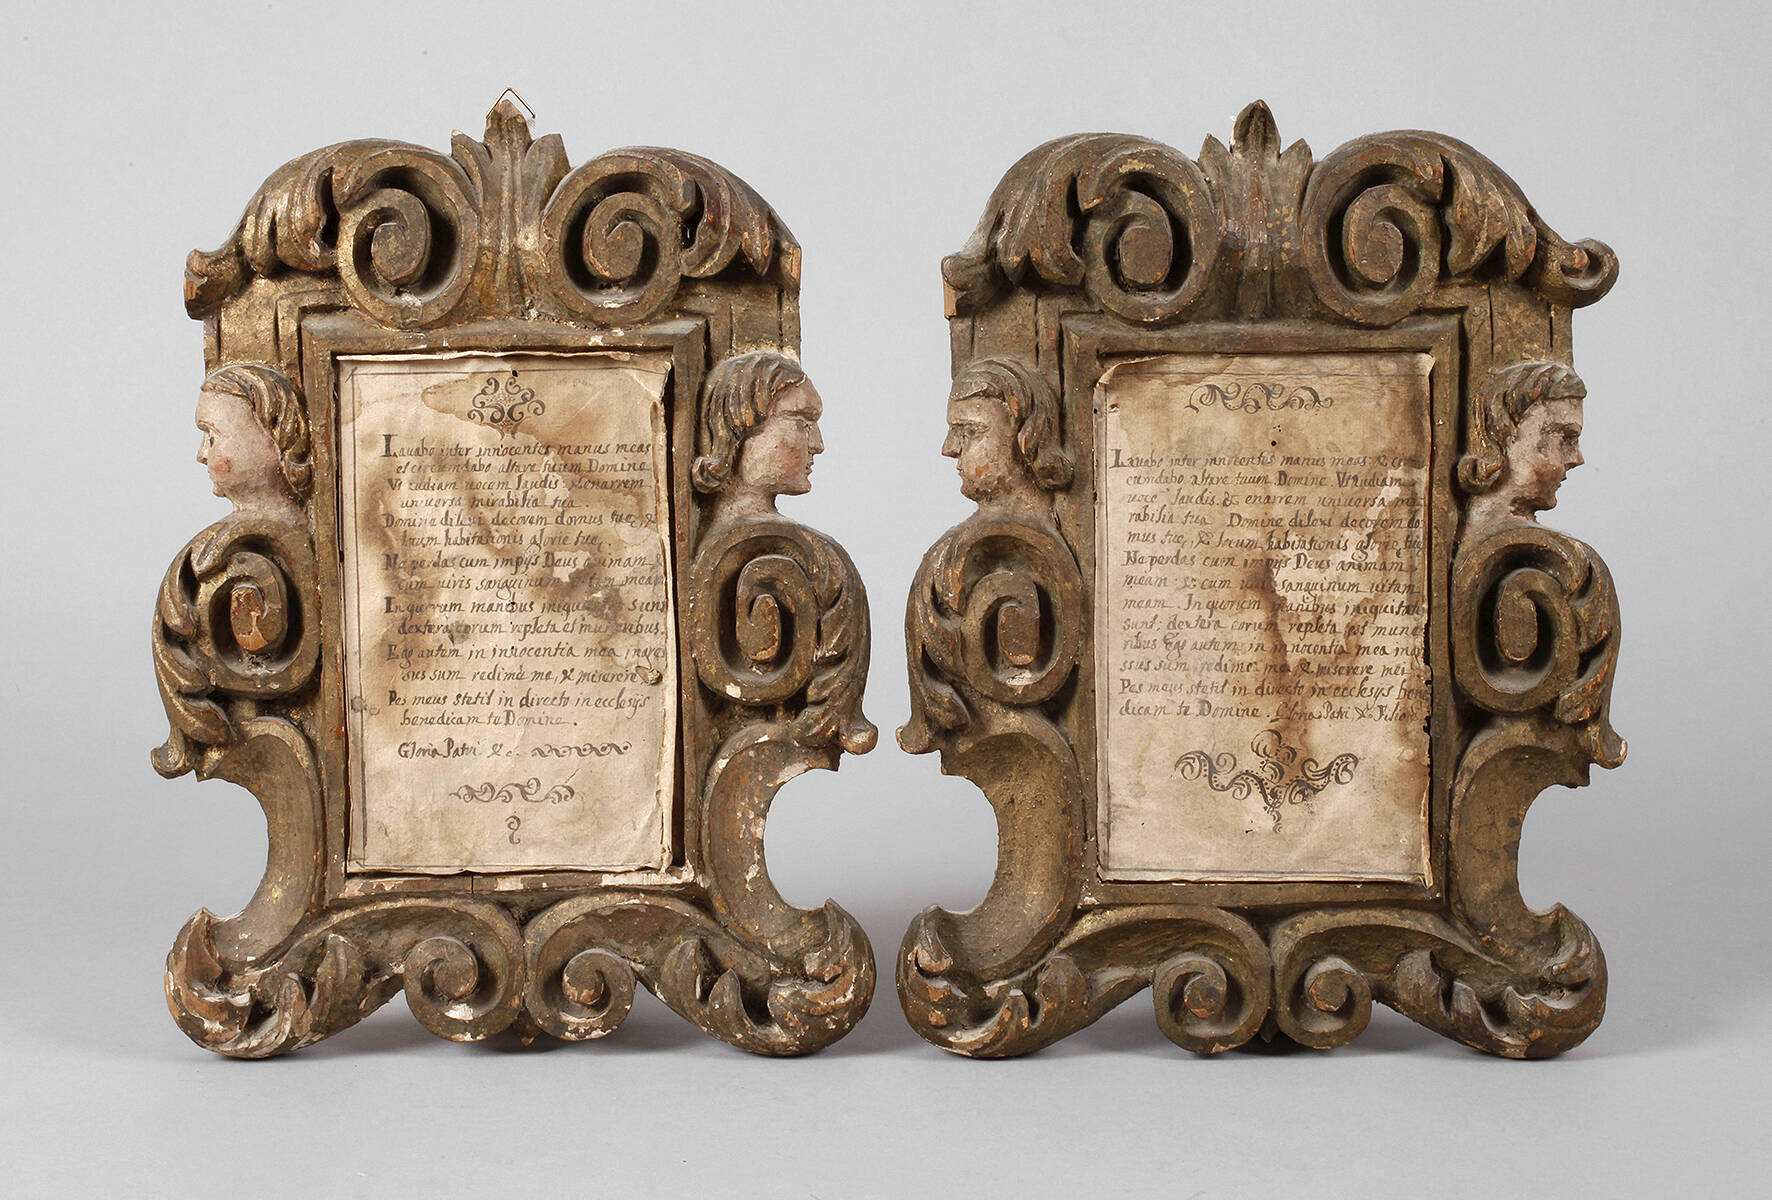 Lavabo inter innocentes manus meas
et circumdabo altare tuum Domine
Vt audiam vocem laudis & enarrem
universa mirabilia tua.
Domine dilexi decorem domus tuę, &
locum habitationis glorię tuę.
Ne perdas cum impijs Deus animam, &
cum viris sanguinum meam
In quorum manibus iniquitates sunt
dextera eorum repleta est muneribus.
Ego autem in innocentia mea ingres
sus sum redime me, & miserere
Pes meus stetit in directo in ecclesijs
benedicam te Domine.
Gloria Patri &c.
Lavabo inter innocentes manus meas & cir
cumdabo altare tuum Domine. Vt audiam
voce laudis. & enarrem universa mi
rabilia tua Domine dilexi decorem do
mus tuę, & locum habitationis glorię tuę
Ne perdas cum impijs Deus animam
meam & cum viris sanguinum vitam
meam. In quorum manibus iniquitates
sunt: dextera eorum repleta est mune
ribus Ego autem in innocentia mea ingre
ssus sum redime me, & miserere mei
Pes meus stetit in directo in ecclesijs bene
dicam te Domine. Gloria Patri & Filio